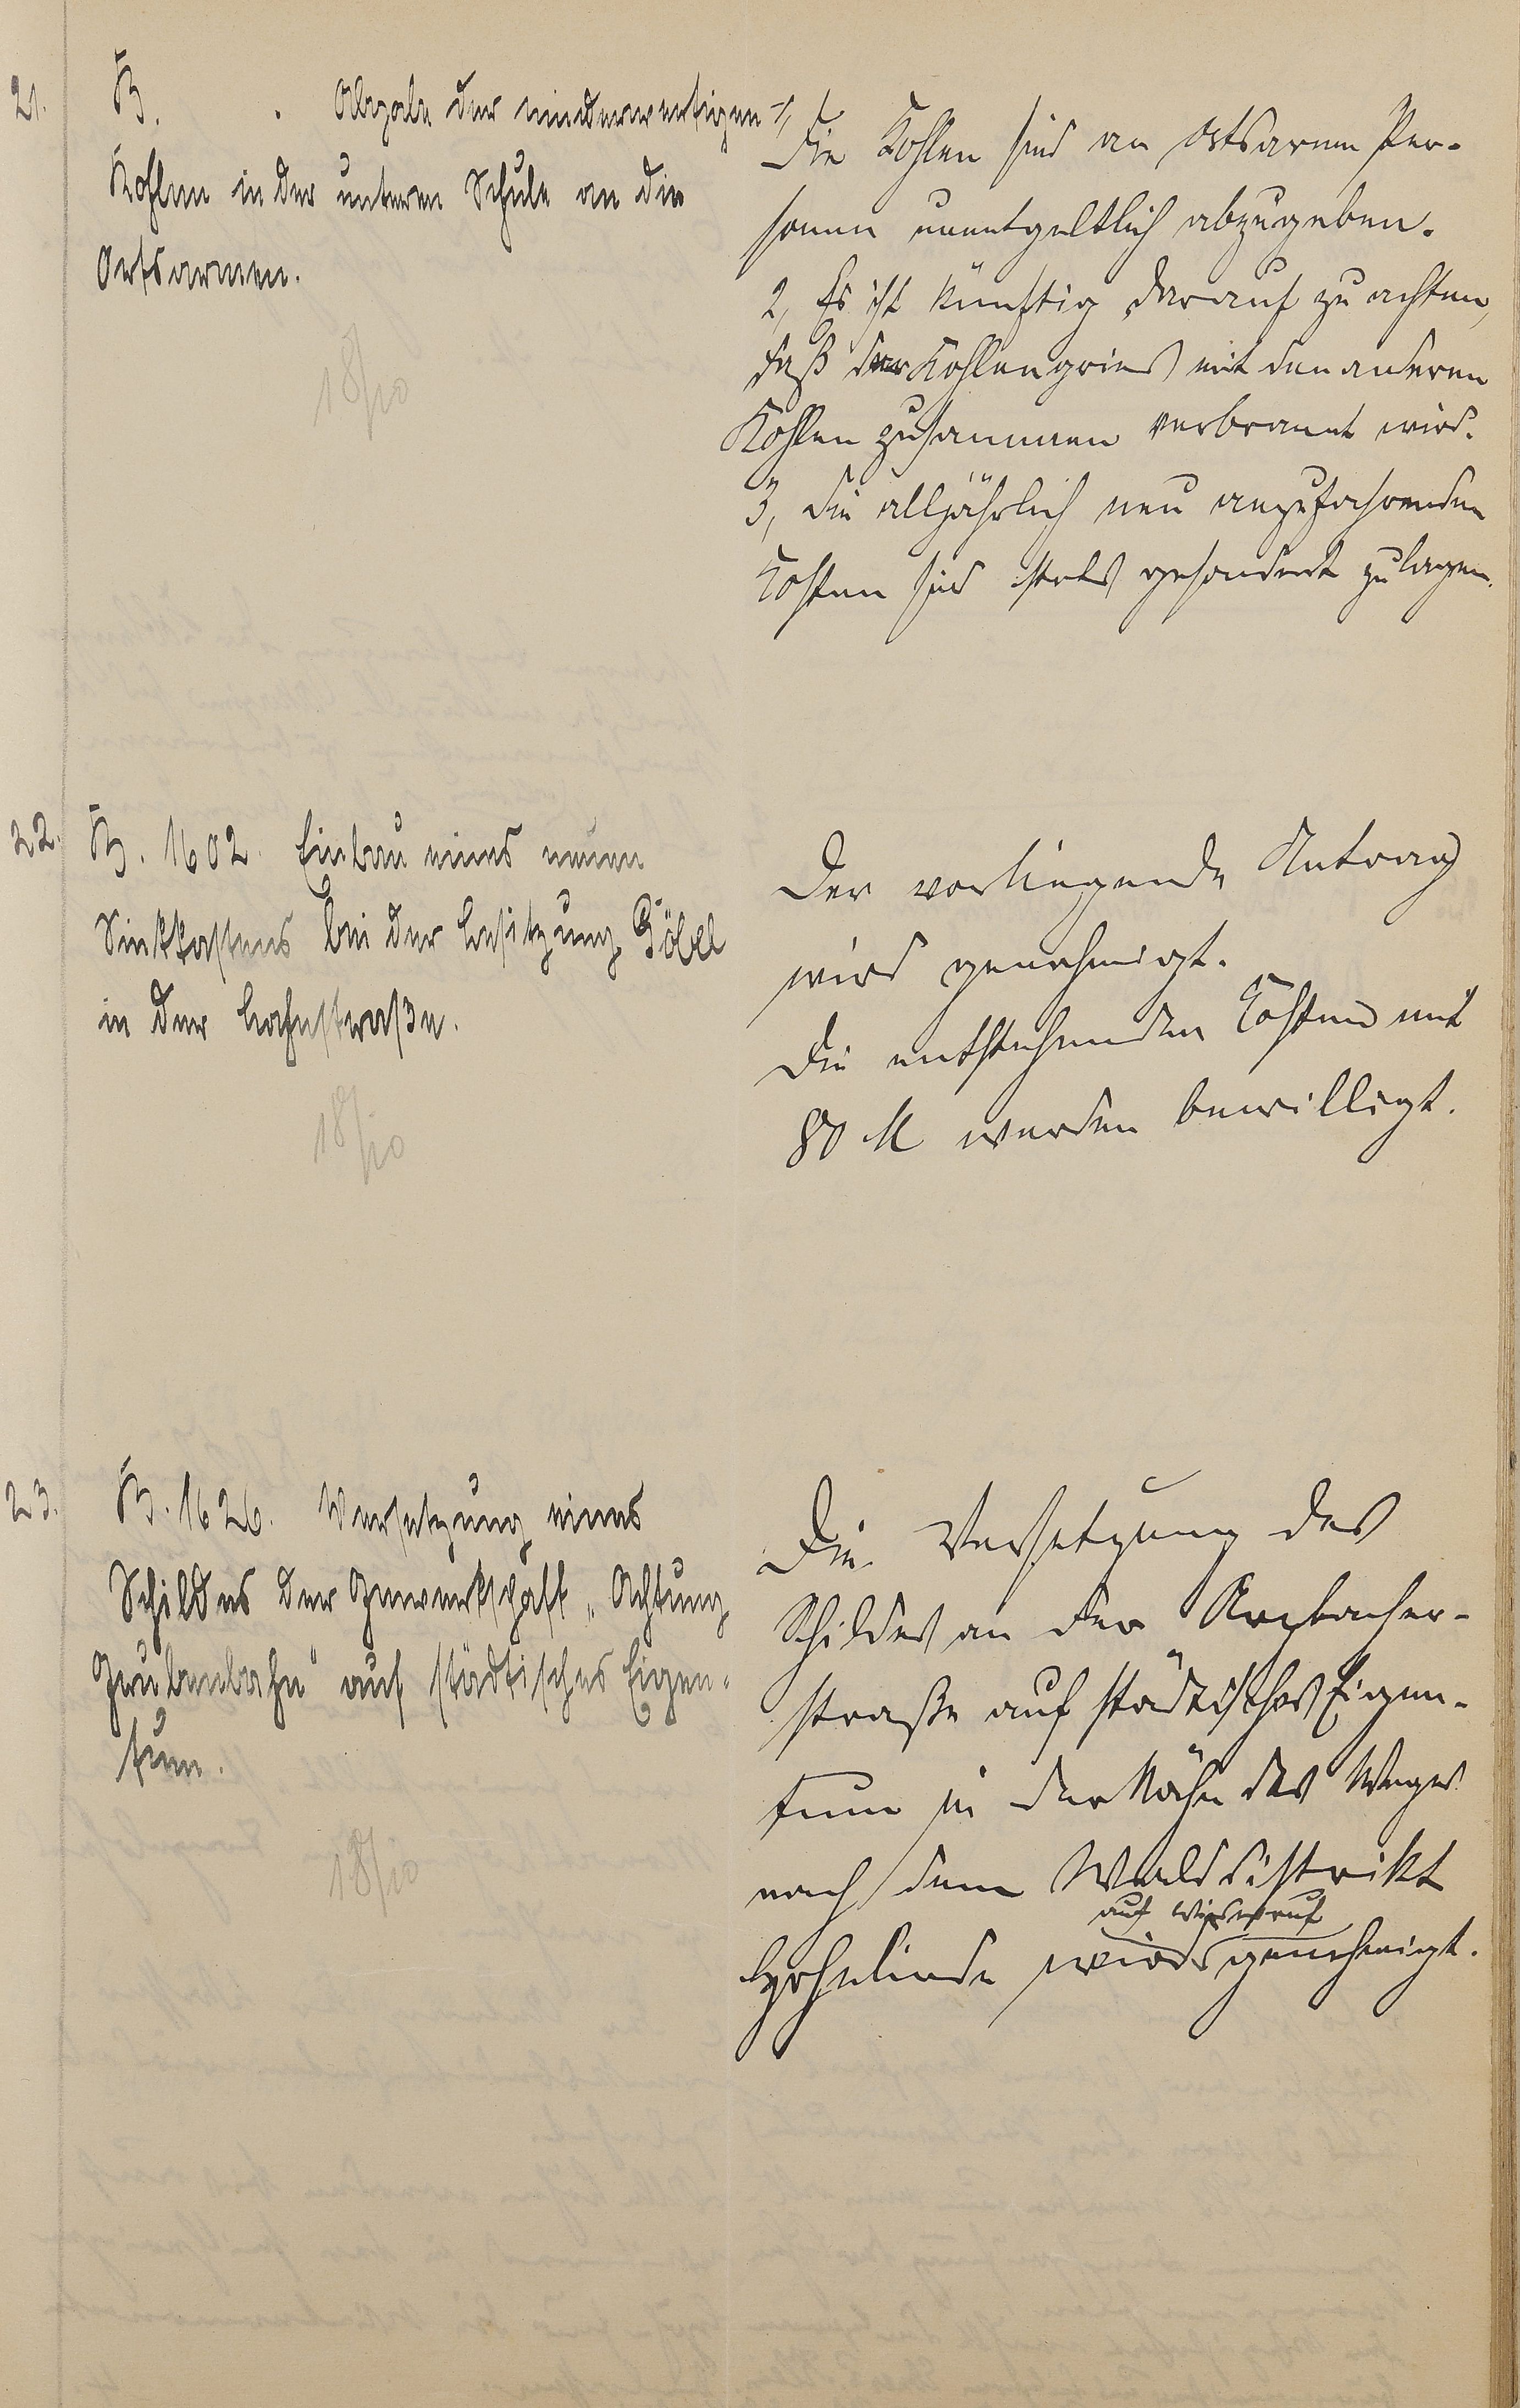 21.
B. . Abgabe der minderwertigen
Kohlen in der unteren Schule an die
Ortsarmen.
18/10
1, Die Kohlen sind an ortsarme Per-
sonen unentgeltlich abzugeben.
2, Es ist künftig darauf zu achten,
daß der Kohlengries mit den anderen
Kohlen zusammen verbrannt wird.
3, Die alljährlich neu anzufahrenden
Kohlen sind stets gesondert zu lagern.
22.
B. 1602. Einbau eines neuen
Sinkkastens bei der Besitzung Göbel
in der Bahnstraße.
18/10
Der vorliegende Antrag
wird genehmigt.
Die entstehenden Kosten mit
80 M werden bewilligt.
23.
B. 1626. Versetzung eines
Schildes der Gewerkschaft „Achtung
Grubenbahn" auf städtisches Eigen-
tum.
18/10
Die Versetzung des
Schildes an der Arzbacher-
straße auf städtisches Eigen-
tum in der Nähe des Weges
nach dem Walddistrikt
auf Widerruf
Hohelinde wird genehmigt.